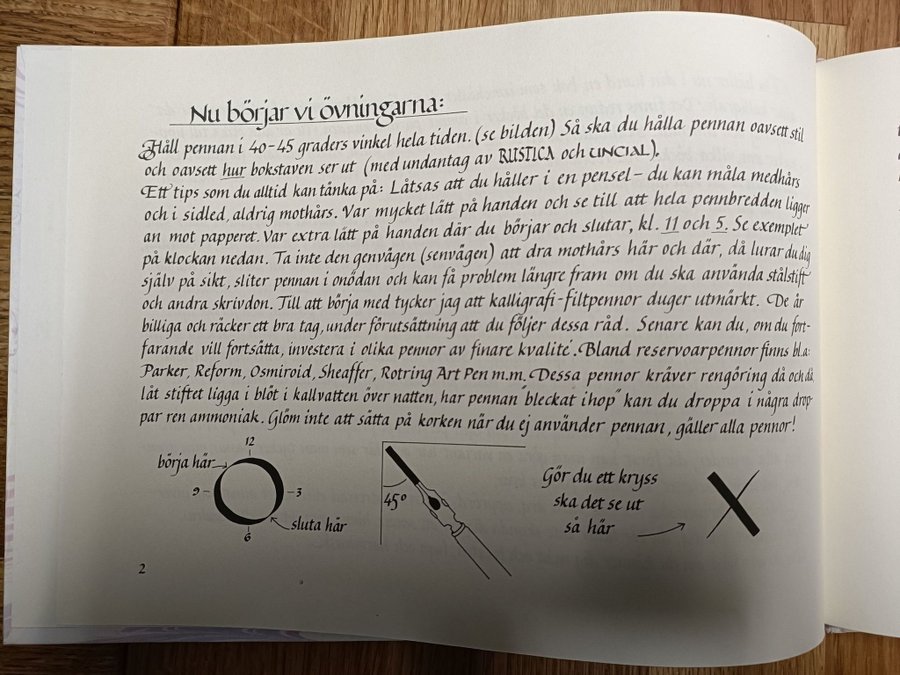 Nu börjar vi övningarna:
Håll pennan i 40-45 graders vinkel hela tiden. (se bilden) Så ska du hålla pennan oavsett stil
och oavsett hur bokstaven ser ut (med undantag av RUSTICA och UNCIAL).
Ett tips som du alltid kan tänka på: Låtsas att du håller i en pensel - du kan måla medhårs
och i sidled, aldrig mothårs. Var mycket lätt på handen och se till att hela pennbredden ligger
an mot papperet. Var extra lätt på handen där du börjar och slutar, kl. 11 och 5. Se exemplet
på klockan nedan. Ta inte den genvägen (senvägen) att dra mothårs här och där, då lurar du dig
själv på sikt, sliter pennan i onödan och kan få problem längre fram om du ska använda stålstift
och andra skrivdon. Till att börja med tycker jag att kalligrafi-filtpennor duger utmärkt. De är
billiga och räcker ett bra tag, under förutsättning att du följer dessa råd. Senare kan du, om du fort-
farande vill fortsätta, investera i olika pennor av finare kvalité. Bland reservoarpennor finns bl.a:
Parker, Reform, Osmiroid, Sheaffer, Rotring Art Pen m.m. Dessa pennor kräver rengöring då och då,
låt stiftet ligga i blöt i kallvatten över natten, har pennan "bleckat ihop" kan du droppa i några drop-
par ren ammoniak. Glöm inte att sätta på korken när du ej använder pennan, gäller alla pennor!
12
börja här
9
3
6
sluta här
45°
Gör du ett kryss
ska det se ut
så här
2